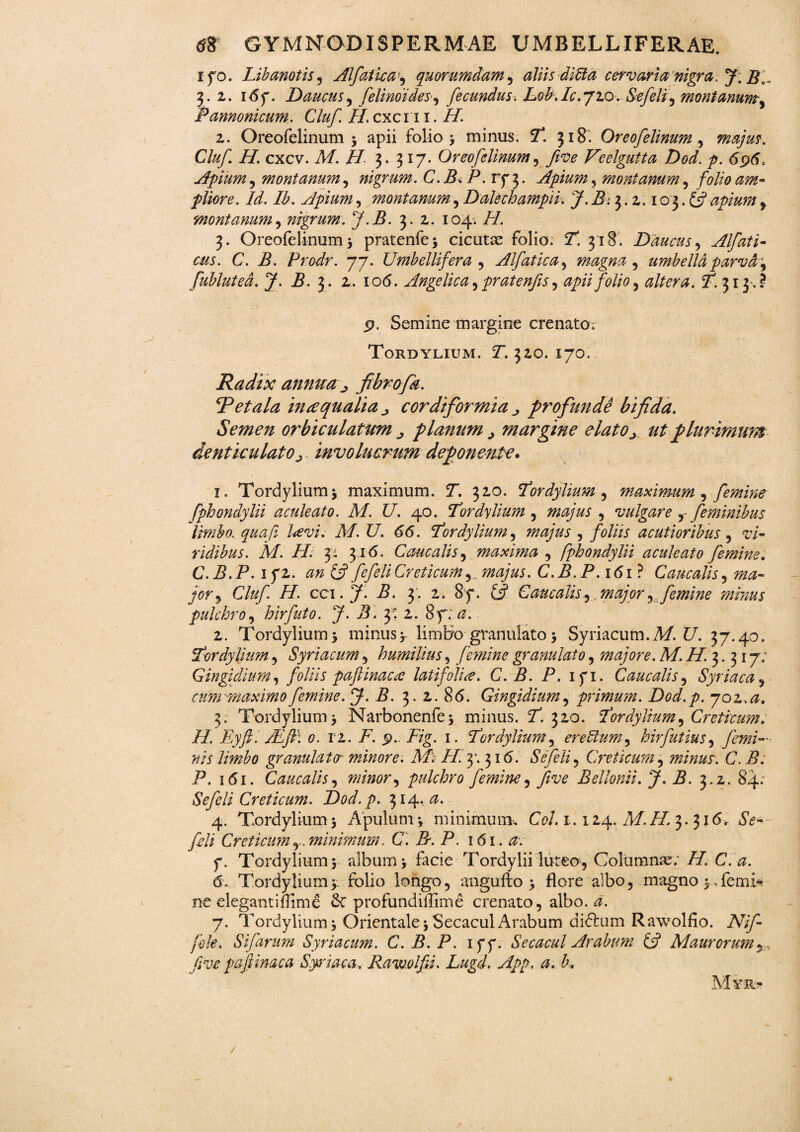 68 GYMNODISPERMAE UMBELLIFERAE.
150. Libanotis, Alſatica, quorumdam, aliis dicta cervaria nigra. J. B.
3. 2. 165. Daucus, ſelinoides, ſecundus. Lob. Ic. 720. Seſeli, montanum,
Pannonicum. Cluſ. H. CXCIII. H.
2. Oreoſelinum; apii folio; minus. T. 318. Oreoſelinum, majus.
Cluſ. H. cxcv. M. H. 3. 317. Oreoſelinum, ſive Veelgutta Dod. p. 696.
Apium, montanum, nigrum. C. B. P. 153. Apium, montanum, folio am-
pliore. Id. Ib. Apium, montanum, Dalechampii. J. B. 3. 2. 103. & apium,
montanum, nigrum. J. B. 3. 2. 104. H.
3. Oreoſelinum; pratenſe; cicutæ folio. T. 318. Daucus, Alſati-
cus. C. B. Prodr. 77. Umbellifera, Alſatica, magna, umbellâ parvâ,
ſubluteâ. J. B. 3. 2. 106. Angelica, pratenſis, apii folio, altera. T. 313.?
9. Semine margine crenato.
TORDYLIUM. T. 320. 170.
Radix annua, fibroſa.
Petala inæqualia, cordiformia, profundè bifida.
Semen orbiculatum, planum, margine elato, ut plurimum
denticulato, involucrum deponente.
1. Tordylium; maximum. T. 320. Tordylium, maximum, ſemine
ſphondylii aculeato. M. U. 40. Tordylium, majus, vulgare, ſeminibus
limbo quaſi lævi. M. U. 66. Tordylium, majus, foliis acutioribus, vi-
ridibus. M. H. 3. 316. Caucalis, maxima, ſphondylii aculeato ſemine.
C. B. P. 152. an & ſeſeli Creticum, majus. C. B. P. 161? Caucalis, ma-
jor, Cluſ. H. CCI. J. B. 3. 2. 85. & Caucalis, major, ſemine minus
pulchro, hirſuto. J. B. 3. 2. 85. a.
2. Tordylium; minus; limbo granulato; Syriacum. M. U. 37. 40.
Tordylium, Syriacum, humilius, ſemine granulato, majore. M. H. 3. 317.
Gingidium, foliis paſtinacæ latifoliæ. C. B. P. 151. Caucalis, Syriaca,
cum maximo ſemine. J. B. 3. 2. 86. Gingidium, primum. Dod. p. 702. a.
3. Tordylium; Narbonenſe; minus. T. 320. Tordylium, Creticum.
H. Eyſt. Æſt. o. 12. F. 9. Fig. 1. Tordylium, erectum, hirſutius, ſemi-
nis limbo granulato minore. M. H. 3. 316. Seſeli, Creticum, minus. C. B.
P. 161. Caucalis, minor, pulchro ſemine, ſive Bellonii. J. B. 3. 2. 84.
Seſeli Creticum. Dod. p. 314. a.
4. Tordylium; Apulum; minimum. Col. 1. 124. M. H. 3. 316. Se-
ſeli Creticum, minimum. C. B. P. 161. a.
5. Tordylium; album; facie Tordylii luteo, Columnæ. H. C. a.
6. Tordylium; folio longo, anguſto; flore albo, magno; ſemi-
ne elegantiſſimè & profundiſſimè crenato, albo. a.
7. Tordylium; Orientale; Secacul Arabum dictum Rawolfio. Niſ-
ſole. Siſarum Syriacum. C. B. P. 155. Secacul Arabum & Maurorum,
ſive paſtinaca Syriaca, Rawolfii. Lugd. App. a. b.
MYR-